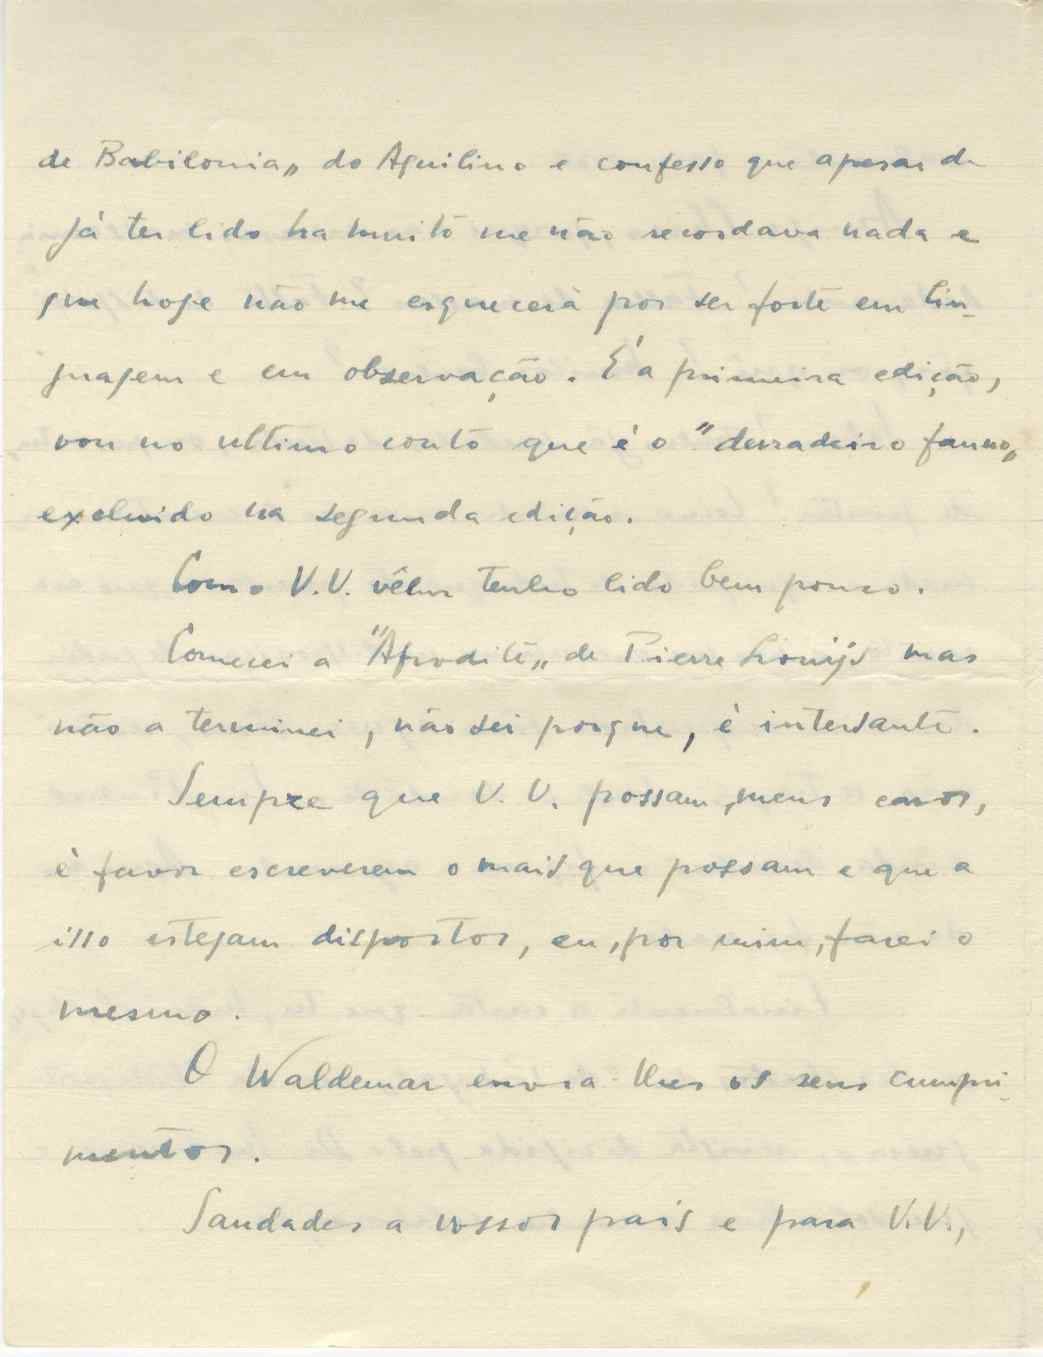 de Babilonia„ do Aquilino e confesso que apesar de
já ter lido ha muito me não recordava nada e
que hoje não me esquecerà por ser forte em lin-
guagem e em observação. É a primeira edição,
vou no ultimo conto que è o "derradeiro fauno„
excluido na segunda edição.
Como V.V. vêem tenho lido bem pouco.
Comecei a "Afrodite„ de Pierre Louijs mas
não a terminei, não sei porque, è intersante.
Sempre que V.V. possam, meus caros,
è favor escreverem o mais que possam e que a
isso estejam dispostos, eu, por mim, farei o
mesmo.
O Waldemar envia-lhes os seus cumpri-
mentos.
Saudades a vossos pais e para V.V.,